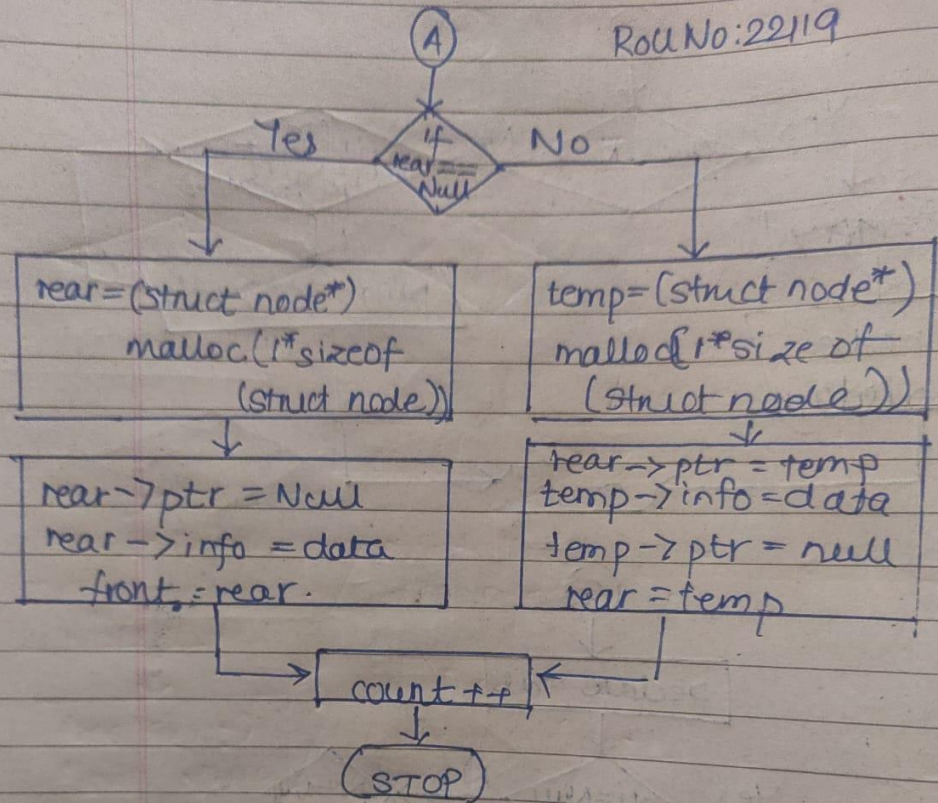 A
Roll No:22119
Yes
If
rear==
Null
No
rear=(struct node*)
malloc(1*sizeof
(struct node))
temp=(struct node*)
malloc(1*size of
(struct node))
rear->ptr = Null
rear->info = data
front = rear.
rear->ptr = temp
temp->info = data
temp->ptr = null
rear = temp
count++
STOP